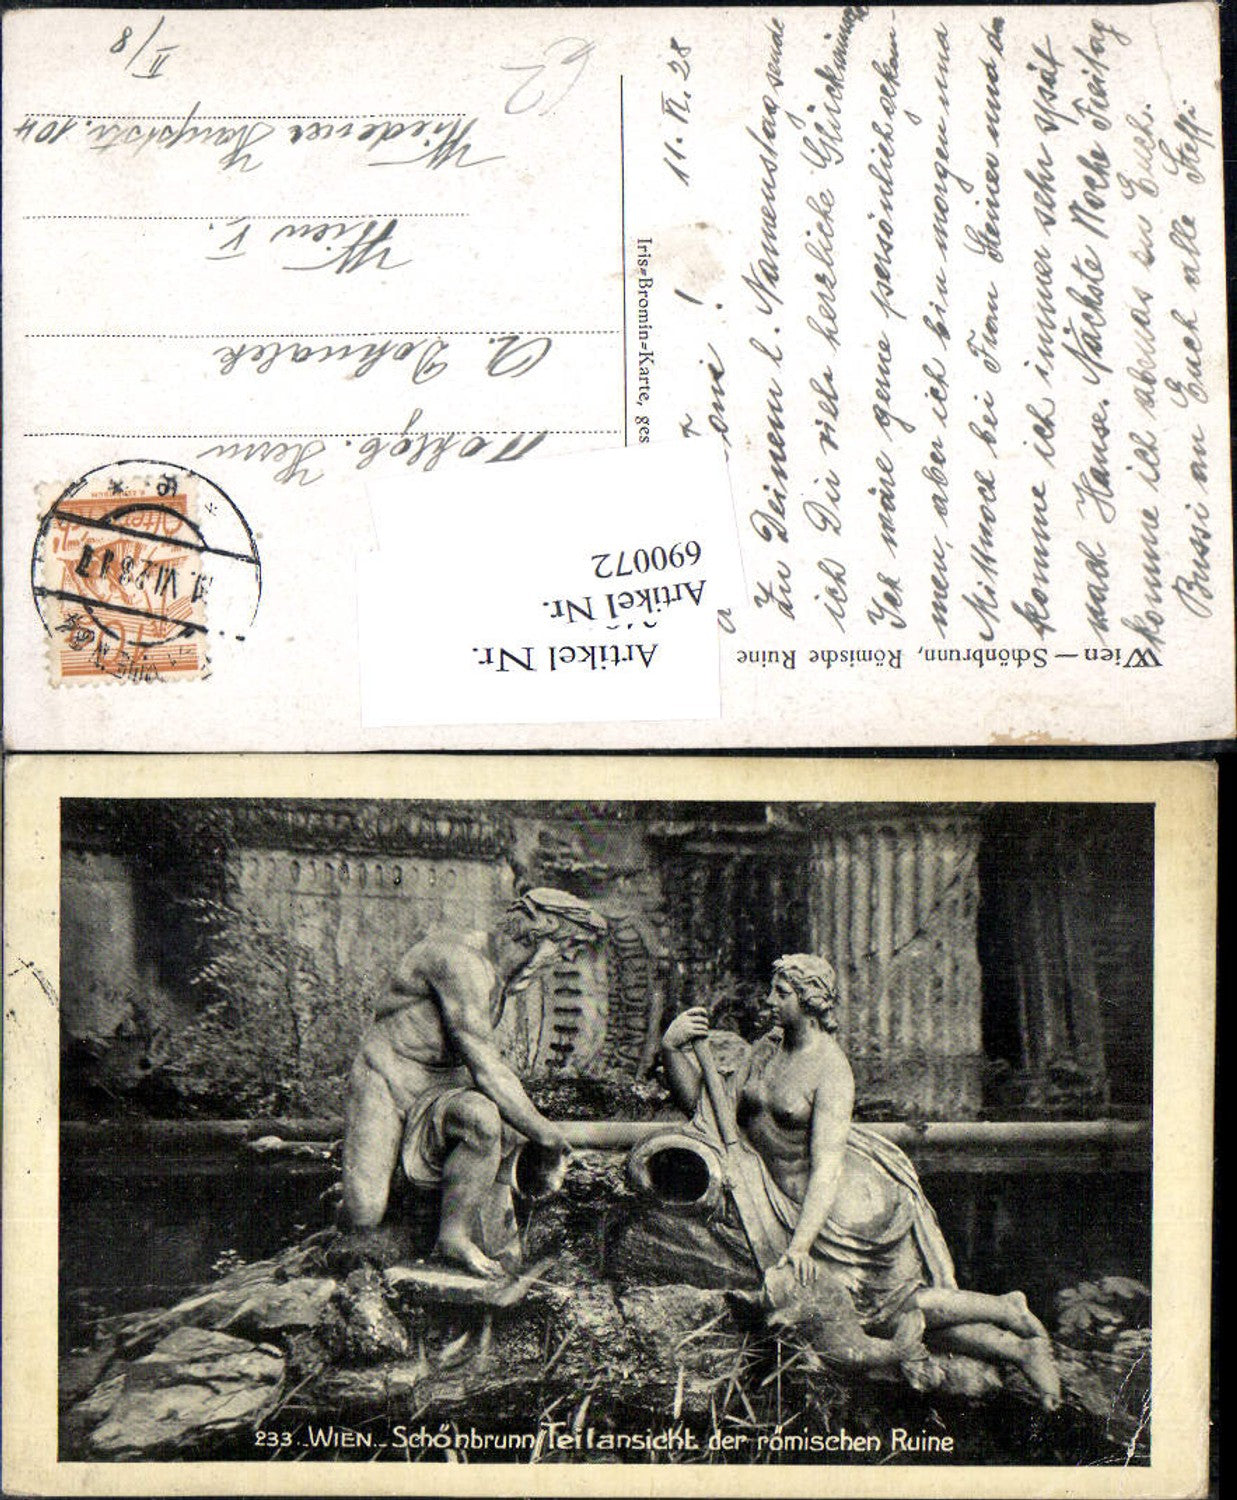 11. VI. 28
! 
Zu Deinem l. Namenstag sende
ich Dir viele herzliche Glückwünsche
Ich wäre gerne persönlich gekom-
men, aber ich bin morgen und
Mittwoch bei Frau Steiner und da
komme ich immer sehr spät
nach Hause. Nächste Woche Freitag
komme ich abends zu Euch.
Bussi an Euch alle Steffi
Wien—Schönbrunn, Römische Ruine
Iris-Bromin-Karte, ges
Wohlgb. Herrn
A. Dohnalek
Wien V.
Wiedner Hauptstr. 104
II/8
62
Österreich
VI.28
Artikel Nr.
Artikel Nr.
690072
233._WIEN._Schönbrunn/Teilansicht der römischen Ruine